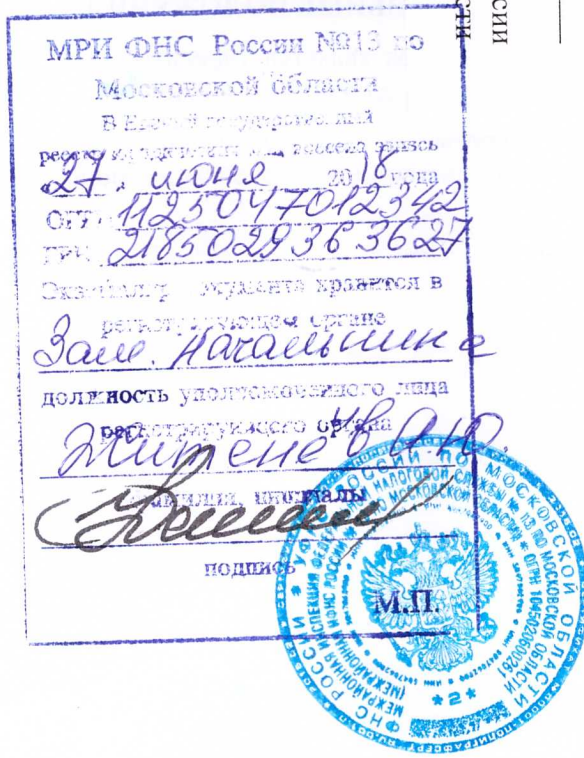 СИИ
СТИ
МРИ ФНС России №13 по
Московской области
В Единый государственный
реестр юридических лиц внесена запись
«27» июня 2018 года
ОГРН 1125047012342
ГРН 2185029363627
Экземпляр документа хранится в
регистрирующем органе
Зам. начальника
должность уполномоченного лица
регистрирующего органа
Житенев А.Ю.
фамилия, инициалы
подпись
М.П.
ФНС РОССИИ * УФНС РОССИИ ПО МОСКОВСКОЙ ОБЛАСТИ
МЕЖРАЙОННАЯ ИНСПЕКЦИЯ ФЕДЕРАЛЬНОЙ НАЛОГОВОЙ СЛУЖБЫ № 13 ПО МОСКОВСКОЙ ОБЛАСТИ
* 2 *